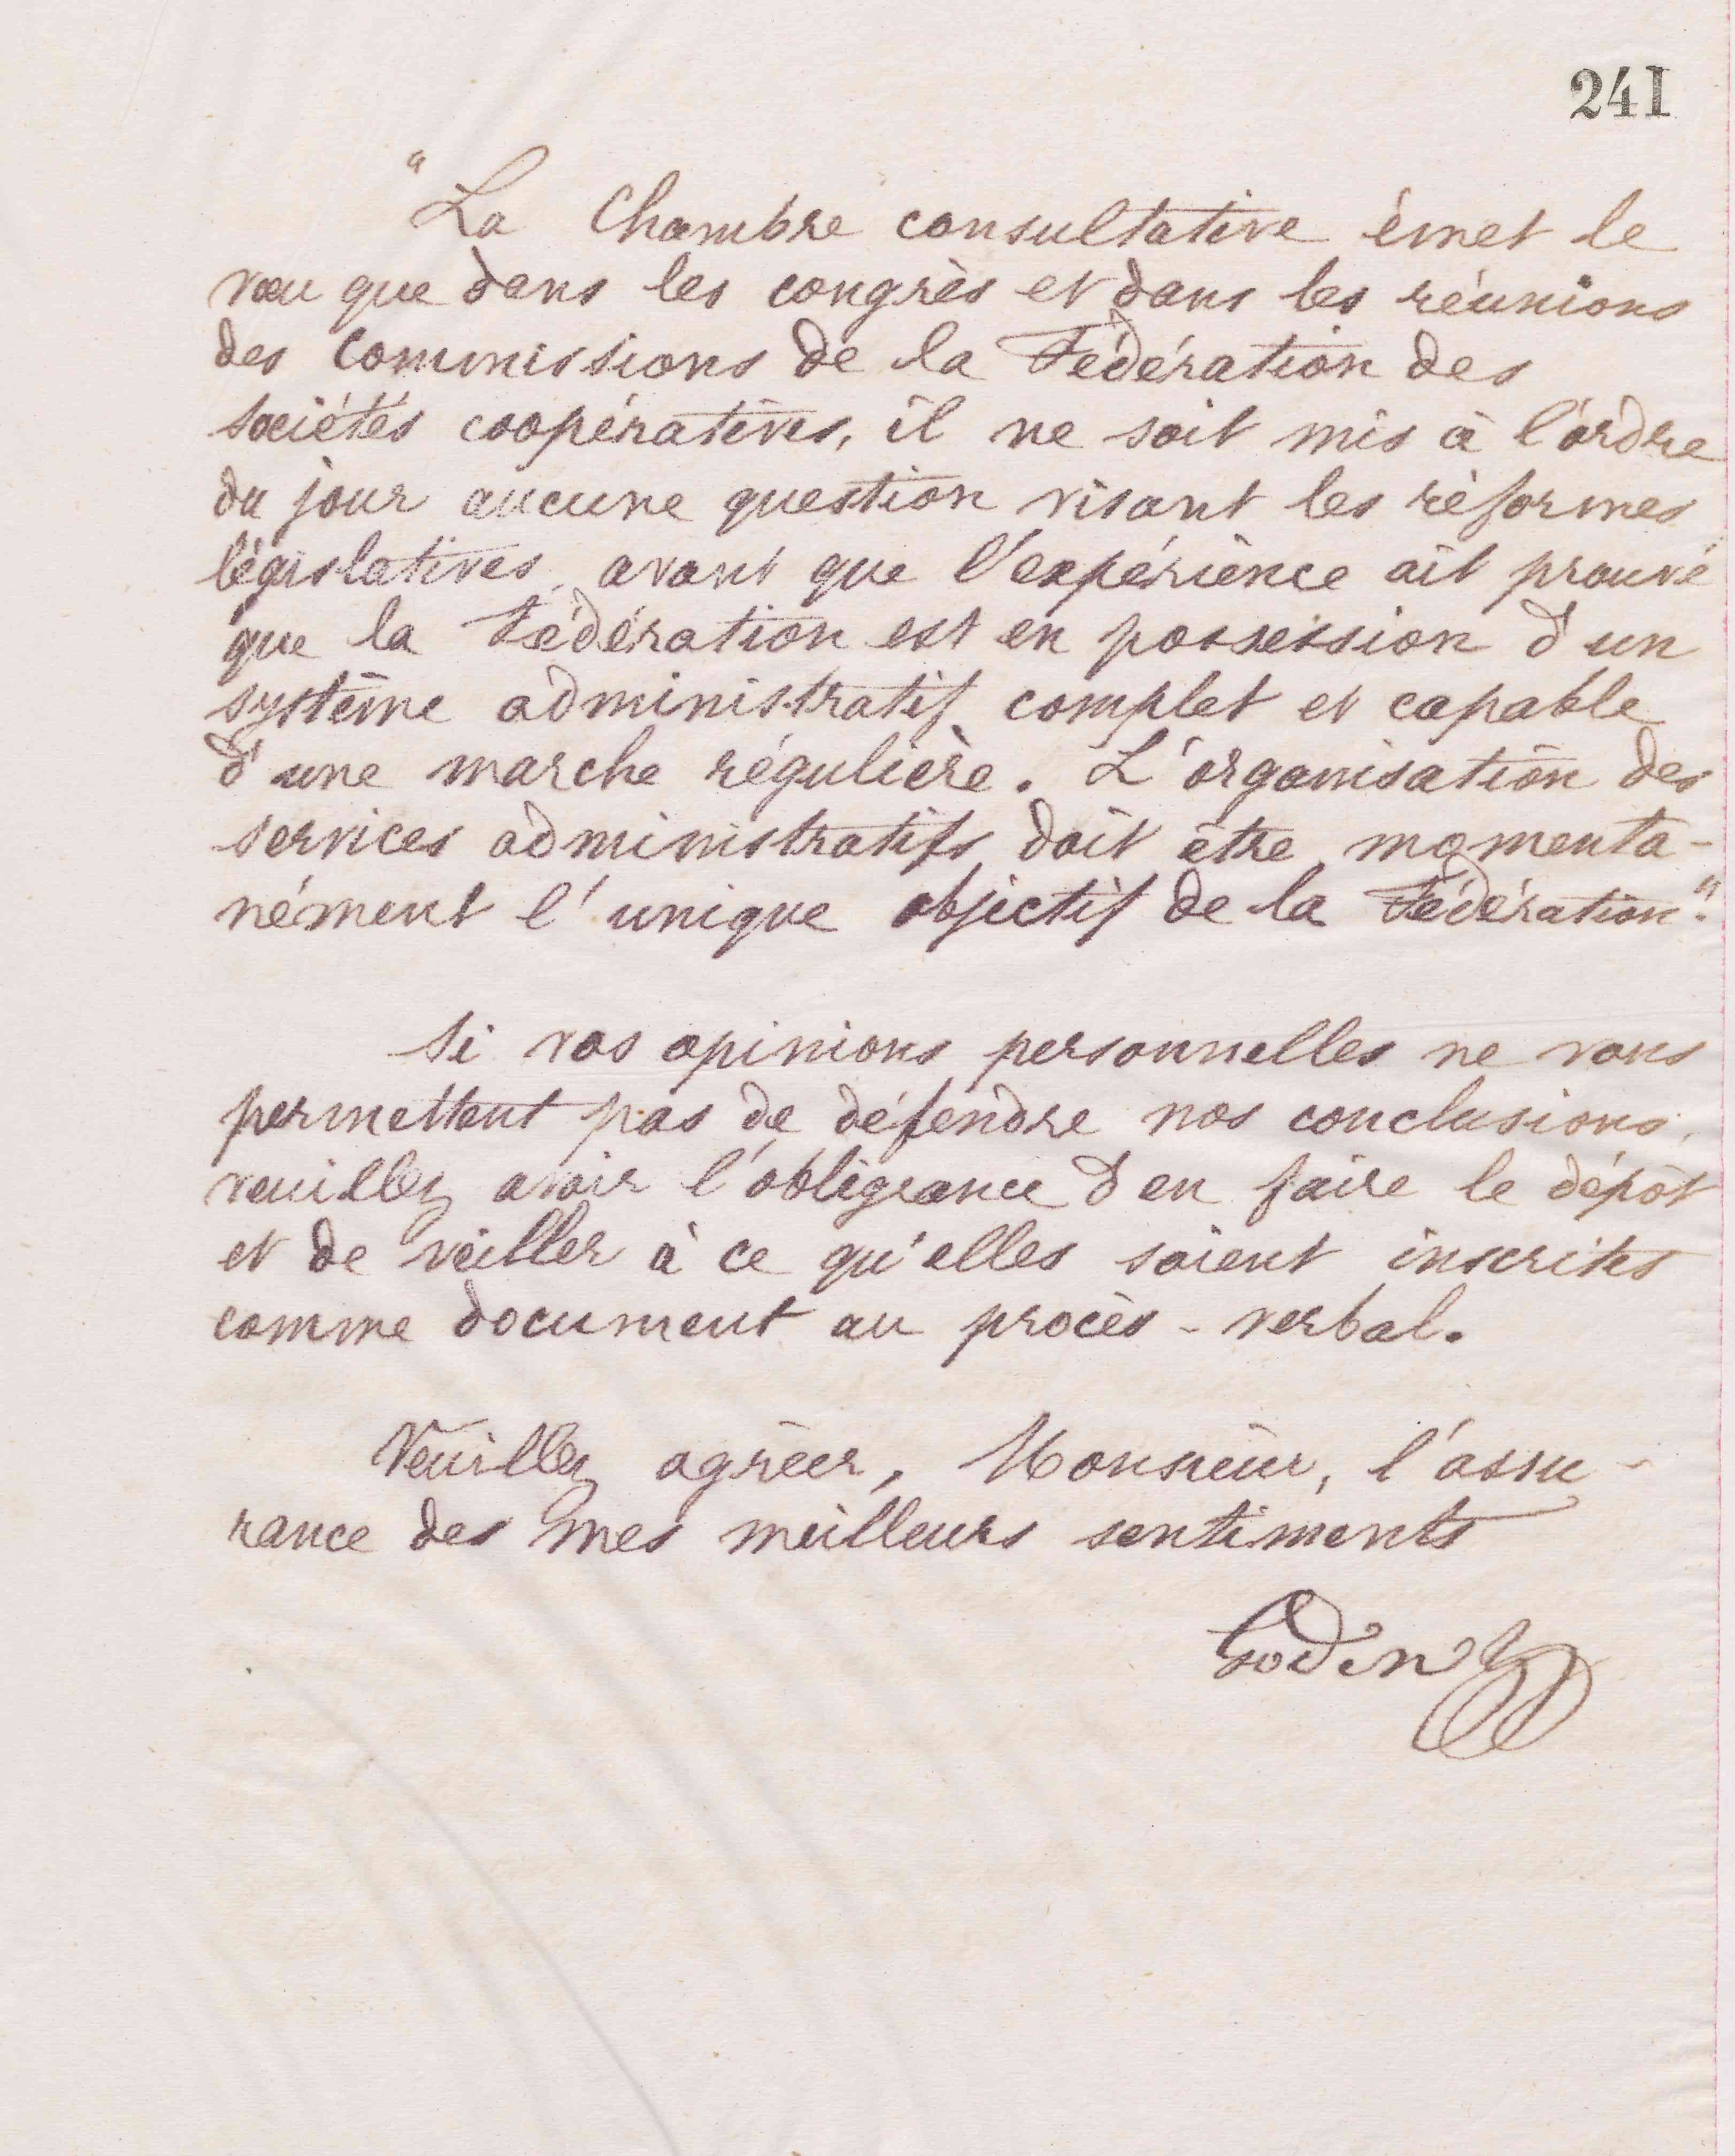 241
"La Chambre consultative émet le
vœu que dans les congrès et dans les réunions
des Commissions de la Fédération des
sociétés coopératives, il ne soit mis à l'ordre
du jour aucune question visant les réformes
législatives, avant que l'expérience ait prouvé
que la Fédération est en possession d'un
système administratif complet et capable
d'une marche régulière. L'organisation des
services administratifs doit être momenta-
nément l'unique objectif de la Fédération."
Si vos opinions personnelles ne vous
permettent pas de défendre nos conclusions,
veuillez avoir l'obligeance d'en faire le dépôt
et de veiller à ce qu'elles soient inscrites
comme document au procès-verbal.
Veuillez agréer, Monsieur, l'assu-
rance des mes meilleurs sentiments
Godin